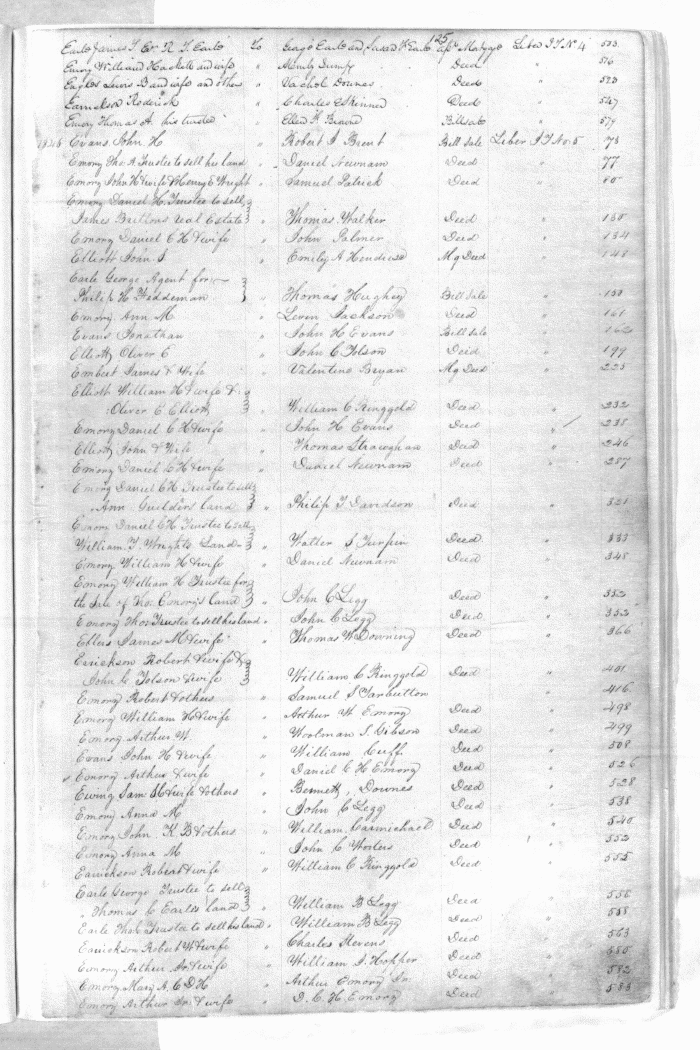 125
Earle James T Ex R T Earle to George Earle and Susan F Earle Liber J T No 4 503
Emory William Hackett and wife " Deed " 516
Eagles Lewis B and wife and others " Vachel Downes Deed " 520
Earrickson Roderick " Charles E Skinner Deed " 547
Emory Thomas A his trustee " Ellen F Brown Bill sale " 579
Evans John H " Robert J Brent Bill Sale Liber J T No. 5
Emory Tho. A Trustee to sell his land " Daniel Newnam Deed " 77
Emory John H & wife & Henry E Wright " Samuel Patrick Deed "
Emory Daniel H. Trustee to sell
James Buttons real Estate " Thomas Walker Deed " 130
Emory Daniel C H & wife " John Palmer Deed " 134
Elliott John S " Emily A Hendrix Mg Deed " 148
Earle George Agent for
Philip H Feddeman " Thomas Hughey Bill Sale " 150
Emory Ann M " Leven Jackson Deed " 161
Evans Jonathan " John H Evans Bill Sale " 162
Elliott Oliver E " John C Tolson Deed " 199
Embert James & Wife " Valentine Bryan Mg Deed " 225
Elliott William H & wife &
Oliver E Elliott " William C Ringgold Deed " 232
Emory Daniel C H & wife " John H Evans Deed " 238
Elliott John & Wife " Thomas Straughan Deed " 246
Emory Daniel C H & wife " Daniel Newnam Deed " 287
Emory Daniel C H Trustee to sell
Ann Guilders land " Philip T Davidson Deed " 321
Emory Daniel C H Trustee to sell
William T. Wrights Land " Walter S Turpin Deed " 333
Emory William H & wife " Daniel Newnam Deed " 348
Emory William H Trustee for
the sale of Tho: Emory's land " John C Legg Deed " 352
Emory Tho: Trustee to sell his land " John C Legg Deed " 352
Ellers James M & wife " Thomas W Downing Deed " 366
Erickson Robert & wife &
John C Tolson & wife " William C Ringgold Deed " 401
Emory Robert & others " Samuel S Tarbutton " 416
Emory William H & wife " Arthur W Emory Deed " 498
Emory Arthur W. " Woolman J. Gibson Deed " 499
Evans John H & wife " William Cuff Deed " 508
Emory Arthur & wife " Daniel C H Emory Deed " 526
Ewing Sam H & wife & others " Bennett Downes Deed " 528
Emory Anna M " John C Legg Deed " 538
Emory John K B & others " William Carmichael Deed " 540
Emory Anna M " John C Worters Deed " 552
Earickson Robert & wife " William C Ringgold Deed " 555
Earle George Trustee to sell
Thomas C Earles land " William B Legg Deed " 556
Earle Tho C Trustee to sell his land " William B Legg Deed " 558
Earickson Robert W & wife " Charles Stevens Deed " 563
Emory Arthur Jr & wife " William J. Hopper Deed " 580
Emory Mary A, C D H " Arthur Emory Jr Deed " 582
Emory Arthur Jr. & wife " D. C. H. Emory Deed " 583